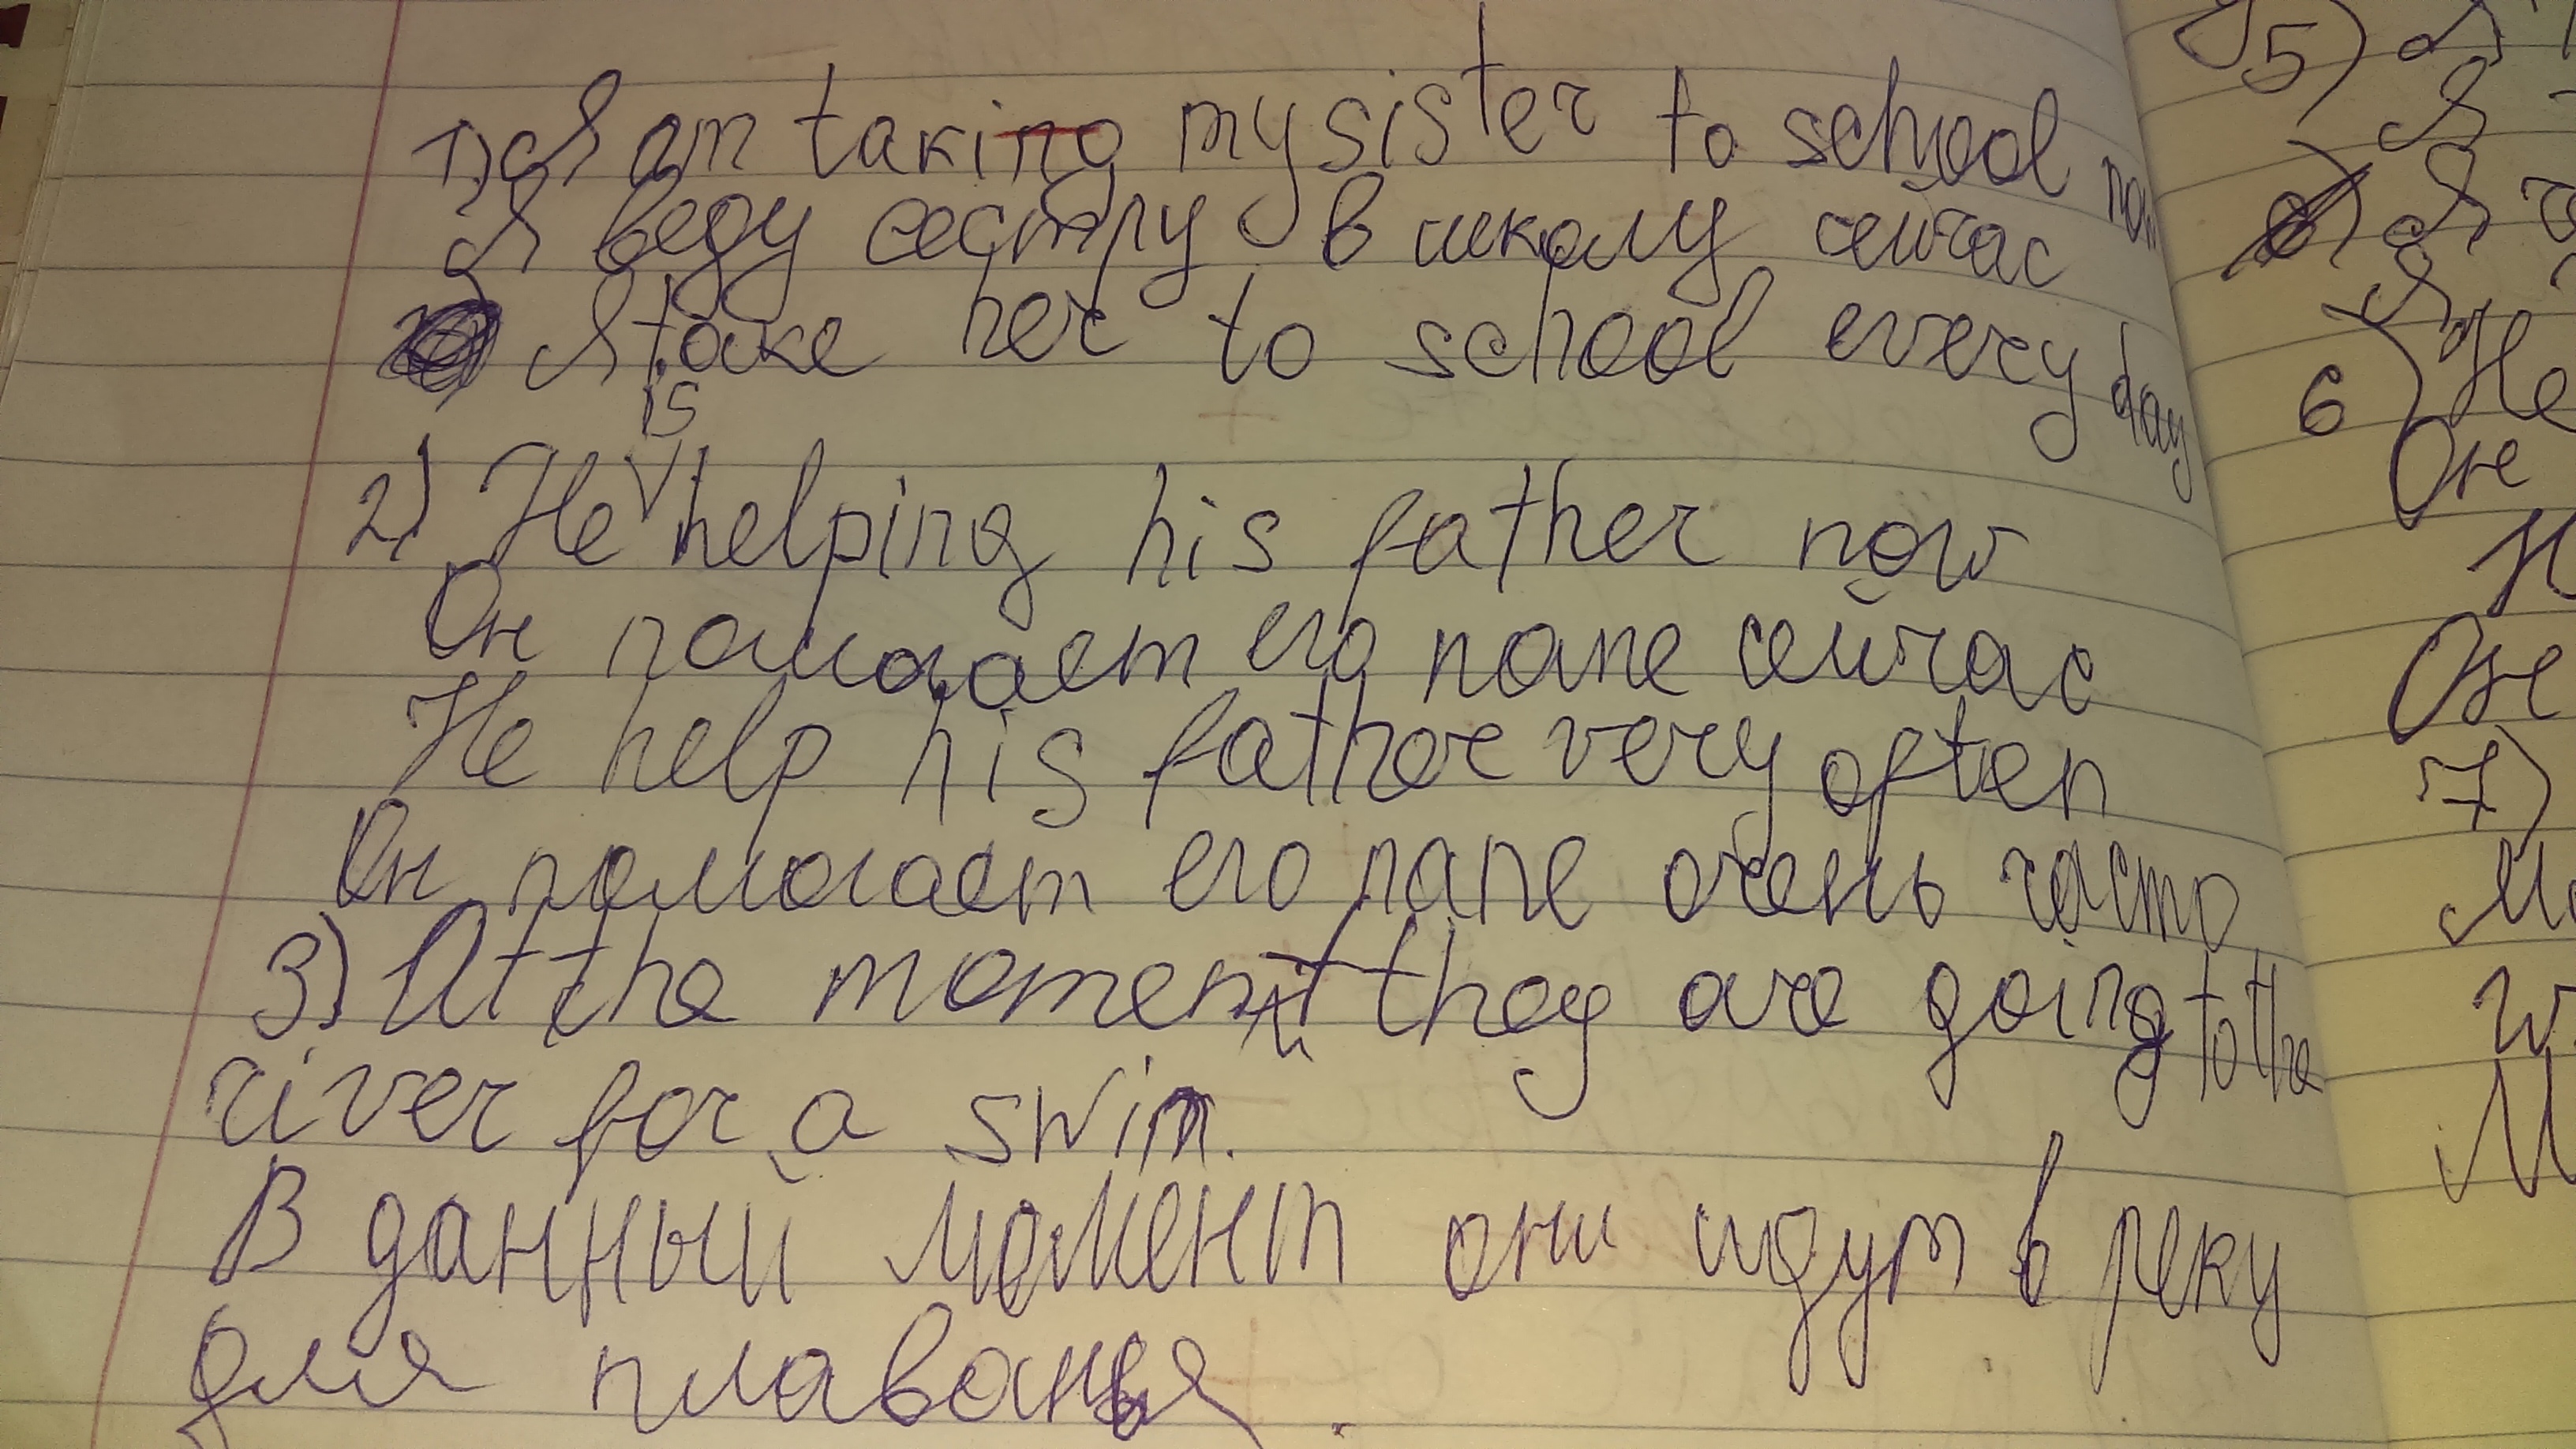 1) I am taking my sister to school now
Я веду сестру в школу сейчас
I take her to school every day
is
2) He helping his father now
Он помагает его папе сейчас
He help his father very often
Он помогает его папе очень часто
3) At the moment they are going to the
river for a swim.
В данный момент они идут в реку
для плаванья.
5)
Я
6) He
Он
Он
7)